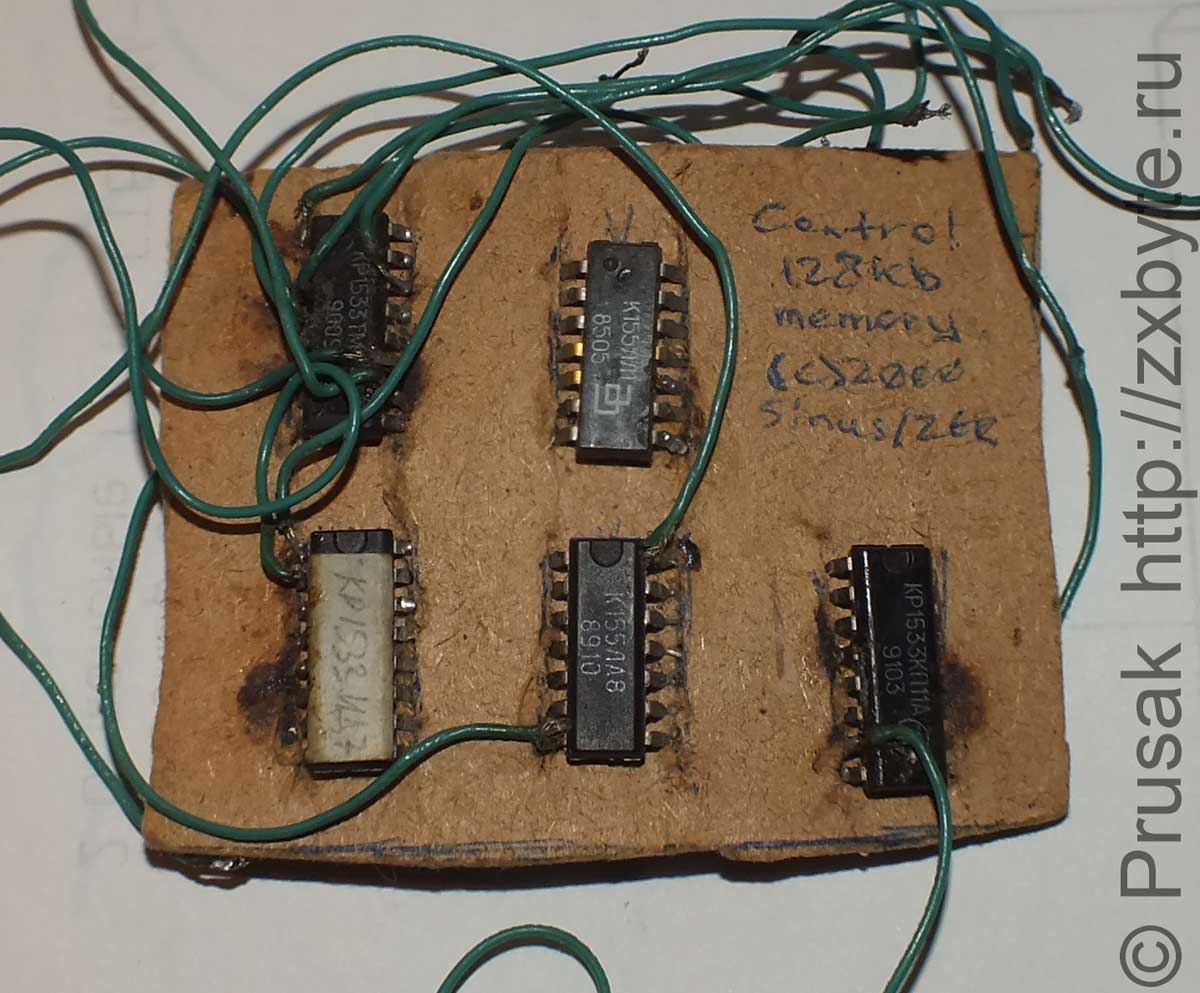 Control
128kb
memory
(c)2000
Sinus/ZER
КР1533ТМ
9609
К155ЛИ1
8505
КР1533 ИД7
К155ЛА8
8910
КР1533КП11А
9103
© Prusak http://zxbyte.ru